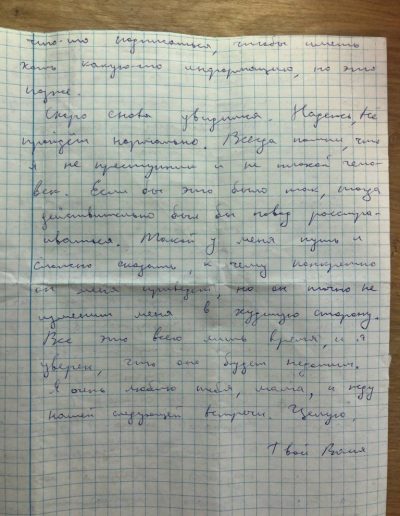 что-то подписаться, чтобы иметь
хоть какую-то информацию, но это
позже.
Скоро снова увидимся. Надеюсь, всё
пройдёт нормально. Всегда помни, что
я не преступник и не плохой чело-
век. Если бы это было так, тогда
действительно был бы повод расстра-
иваться. Такой у меня путь и
сложно сказать, к чему конкретно
он меня приведёт, но он точно не
изменит меня в худшую сторону.
Все это всего лишь время, и я
уверен, что оно будет недолгим.
Я очень люблю тебя, мама, и жду
нашей следующей встречи. Целую,
Твой Ваня